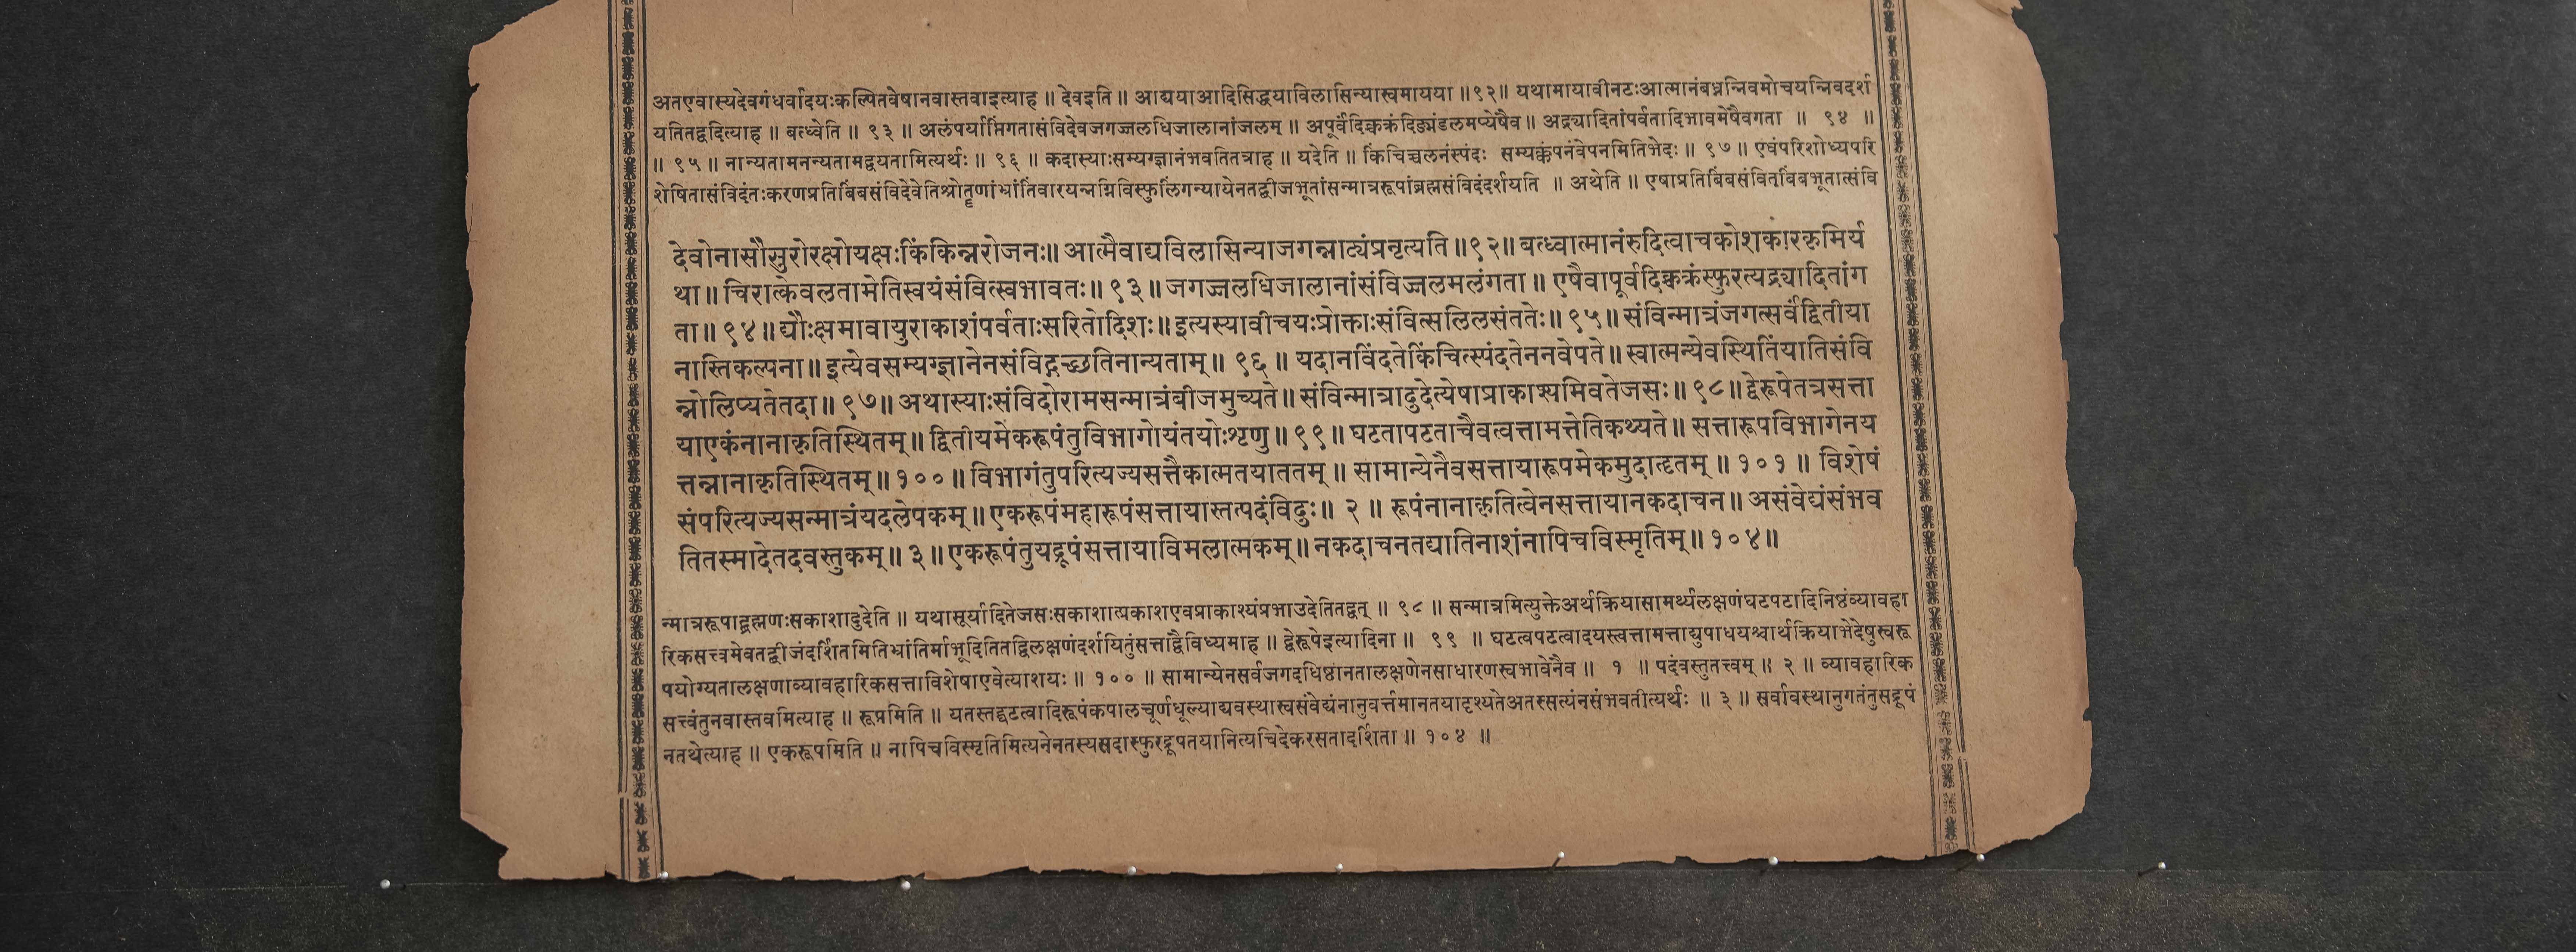 अतएवास्यदेवगंधर्वादयःकल्पितवेषानवास्तवाइत्याह ॥ देवइति ॥ आद्ययाआदिसिद्धयाविलासिन्यास्वमायया ॥९२॥ यथामायावीनटःआत्मानंबध्नन्निवमोचयन्निवदर्श
यतितद्वदित्याह ॥ बत्ध्वेति ॥ ९३ ॥ अलंपर्याप्तिंगतासंविदेवजगज्जलधिजालानांजलम् ॥ अपूर्वंदिक्चक्रंदिङ्मंडलमप्येषैव ॥ अद्र्यादितांपर्वतादिभावमेषैवगता ॥ ९४ ॥
॥ ९५ ॥ नान्यतामनन्यतामद्वयतामित्यर्थः ॥ ९६ ॥ कदास्याःसम्यग्ज्ञानंभवतितत्राह ॥ यदेति ॥ किंचिच्चलनंस्पंदः सम्यक्कंपनंवेपनमितिभेदः ॥ ९७ ॥ एवंपरिशोध्यपरि
शेषितासंविदंतःकरणप्रतिबिंबसंविदेवेतिश्रोतॄणांभ्रांतिंवारयन्नग्निविस्फुलिंगन्यायेनतद्बीजभूतांसन्मात्ररूपांब्रह्मसंविदंदर्शयति ॥ अथेति ॥ एषाप्रतिबिंबसंवित्बिंबभूतात्संवि
देवोनासौसुरोरक्षोयक्षःकिंकिन्नरोजनः॥ आत्मैवाद्यविलासिन्याजगन्नाट्यंप्रनृत्यति ॥९२॥ बत्ध्वात्मानंरुदित्वाचकोशकारकृमिर्य
था ॥ चिरात्केवलतामेतिस्वयंसंवित्स्वभावतः॥ ९३ ॥ जगज्जलधिजालानांसंविज्जलमलंगता ॥ एषैवापूर्वदिक्चक्रंस्फुरत्यद्र्यादितांग
ता ॥ ९४ ॥ द्यौःक्षमावायुराकाशंपर्वताःसरितोदिशः॥ इत्यस्यावीचयःप्रोक्ताःसंवित्सलिलसंततेः॥ ९५ ॥ संविन्मात्रंजगत्सर्वंद्वितीया
नास्तिकल्पना ॥ इत्येवसम्यग्ज्ञानेनसंविद्गच्छतिनान्यताम् ॥ ९६ ॥ यदानविंदतेकिंचित्स्पंदतेननवेपते ॥ स्वात्मन्येवस्थितिंयातिसंवि
न्नोलिप्यतेतदा ॥ ९७ ॥ अथास्याःसंविदोरामसन्मात्रंबीजमुच्यते ॥ संविन्मात्रादुदेत्येषाप्राकाश्यमिवतेजसः॥ ९८ ॥ द्वेरूपेतत्रसत्ता
याएकंनानाकृतिस्थितम् ॥ द्वितीयमेकरूपंतुविभागोयंतयोःशृणु ॥ ९९ ॥ घटतापटताचैवत्वत्तामत्तेतिकथ्यते ॥ सत्तारूपविभागेनय
त्तन्नानाकृतिस्थितम् ॥ १०० ॥ विभागंतुपरित्यज्यसत्तैकात्मतयाततम् ॥ सामान्येनैवसत्तायारूपमेकमुदाहृतम् ॥ १०१ ॥ विशेषं
संपरित्यज्यसन्मात्रंयदलेपकम् ॥ एकरूपंमहारूपंसत्तायास्तत्पदंविदुः॥ २ ॥ रूपंनानाकृतित्वेनसत्तायानकदाचन ॥ असंवेद्यंसंभव
तितस्मादेतदवस्तुकम् ॥ ३ ॥ एकरूपंतुयद्रूपंसत्तायाविमलात्मकम् ॥ नकदाचनतद्यातिनाशंनापिचविस्मृतिम् ॥ १०४ ॥
न्मात्ररूपाद्ब्रह्मणःसकाशादुदेति ॥ यथासूर्यादितेजसःसकाशात्प्रकाशएवप्राकाश्यंप्रभाउदेतितद्वत् ॥ ९८ ॥ सन्मात्रमित्युक्तेअर्थक्रियासामर्थ्यलक्षणंघटपटादिनिष्ठंव्यावहा
रिकसत्त्वमेवतद्बीजंदर्शितमितिभ्रांतिर्माभूदितितद्विलक्षणंदर्शयितुंसत्ताद्वैविध्यमाह ॥ द्वेरूपेइत्यादिना ॥ ९९ ॥ घटत्वपटत्वादयस्त्वत्तामत्ताद्युपाधयश्चार्थक्रियाभेदेषुस्वरू
पयोग्यतालक्षणाव्यावहारिकसत्ताविशेषाएवेत्याशयः ॥ १०० ॥ सामान्येनसर्वजगदधिष्ठानतालक्षणेनसाधारणस्वभावेनैव ॥ १ ॥ पदंवस्तुतत्त्वम् ॥ २ ॥ व्यावहारिक
सत्त्वंतुनवास्तवमित्याह ॥ रूपमिति ॥ यतस्तद्घटत्वादिरूपंकपालचूर्णधूल्याद्यवस्थास्वसंवेद्यंनानुवर्त्तमानतयादृश्यतेअतस्सत्यंनसंभवतीत्यर्थः ॥ ३ ॥ सर्वावस्थानुगतंतुसद्रूपं
नतथेत्याह ॥ एकरूपमिति ॥ नापिचविस्मृतिमित्यनेनतस्यसदास्फुरद्रूपतयानित्यचिदेकरसतादर्शिता ॥ १०४ ॥